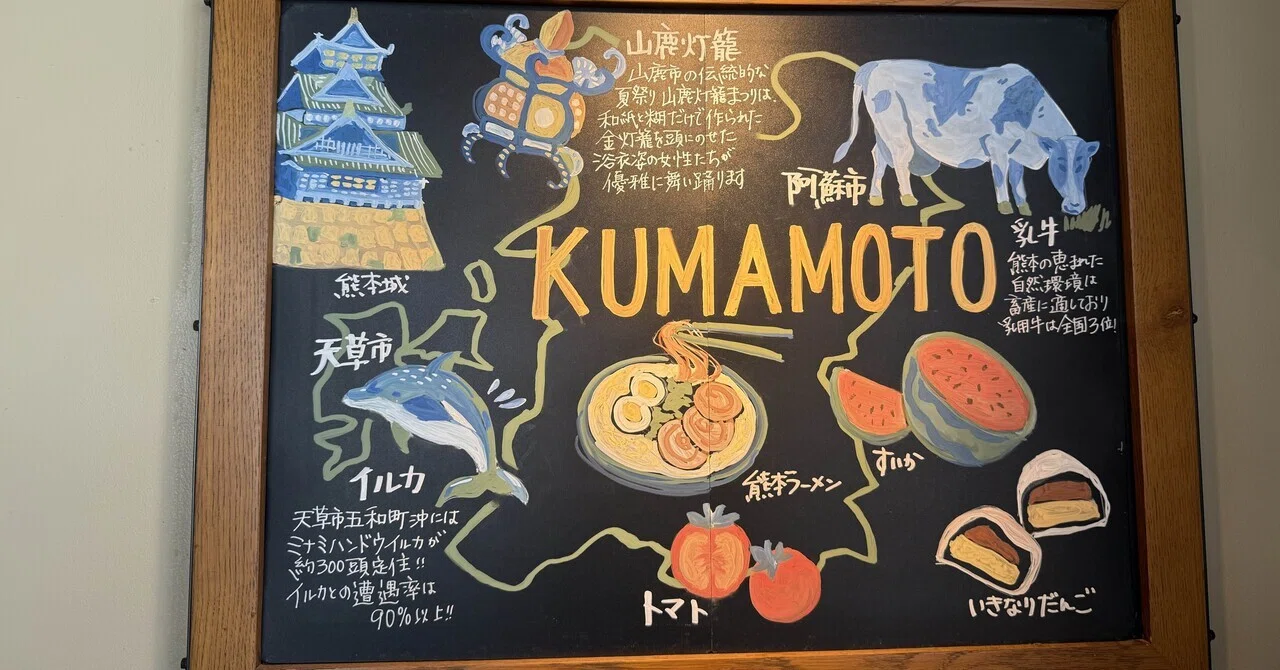 山鹿灯籠
山鹿市の伝統的な
夏祭り山鹿灯籠まつりは、
和紙と糊だけで作られた
金灯籠を頭にのせた
浴衣姿の女性たちが
優雅に舞い踊ります
阿蘇市
乳牛
熊本の恵まれた
自然環境は
畜産に適しており
乳用牛は全国3位!
KUMAMOTO
熊本城
天草市
イルカ
天草市五和町沖には
ミナミハンドウイルカが
約300頭定住!!
イルカとの遭遇率は
90%以上!!
熊本ラーメン
すいか
トマト
いきなりだんご